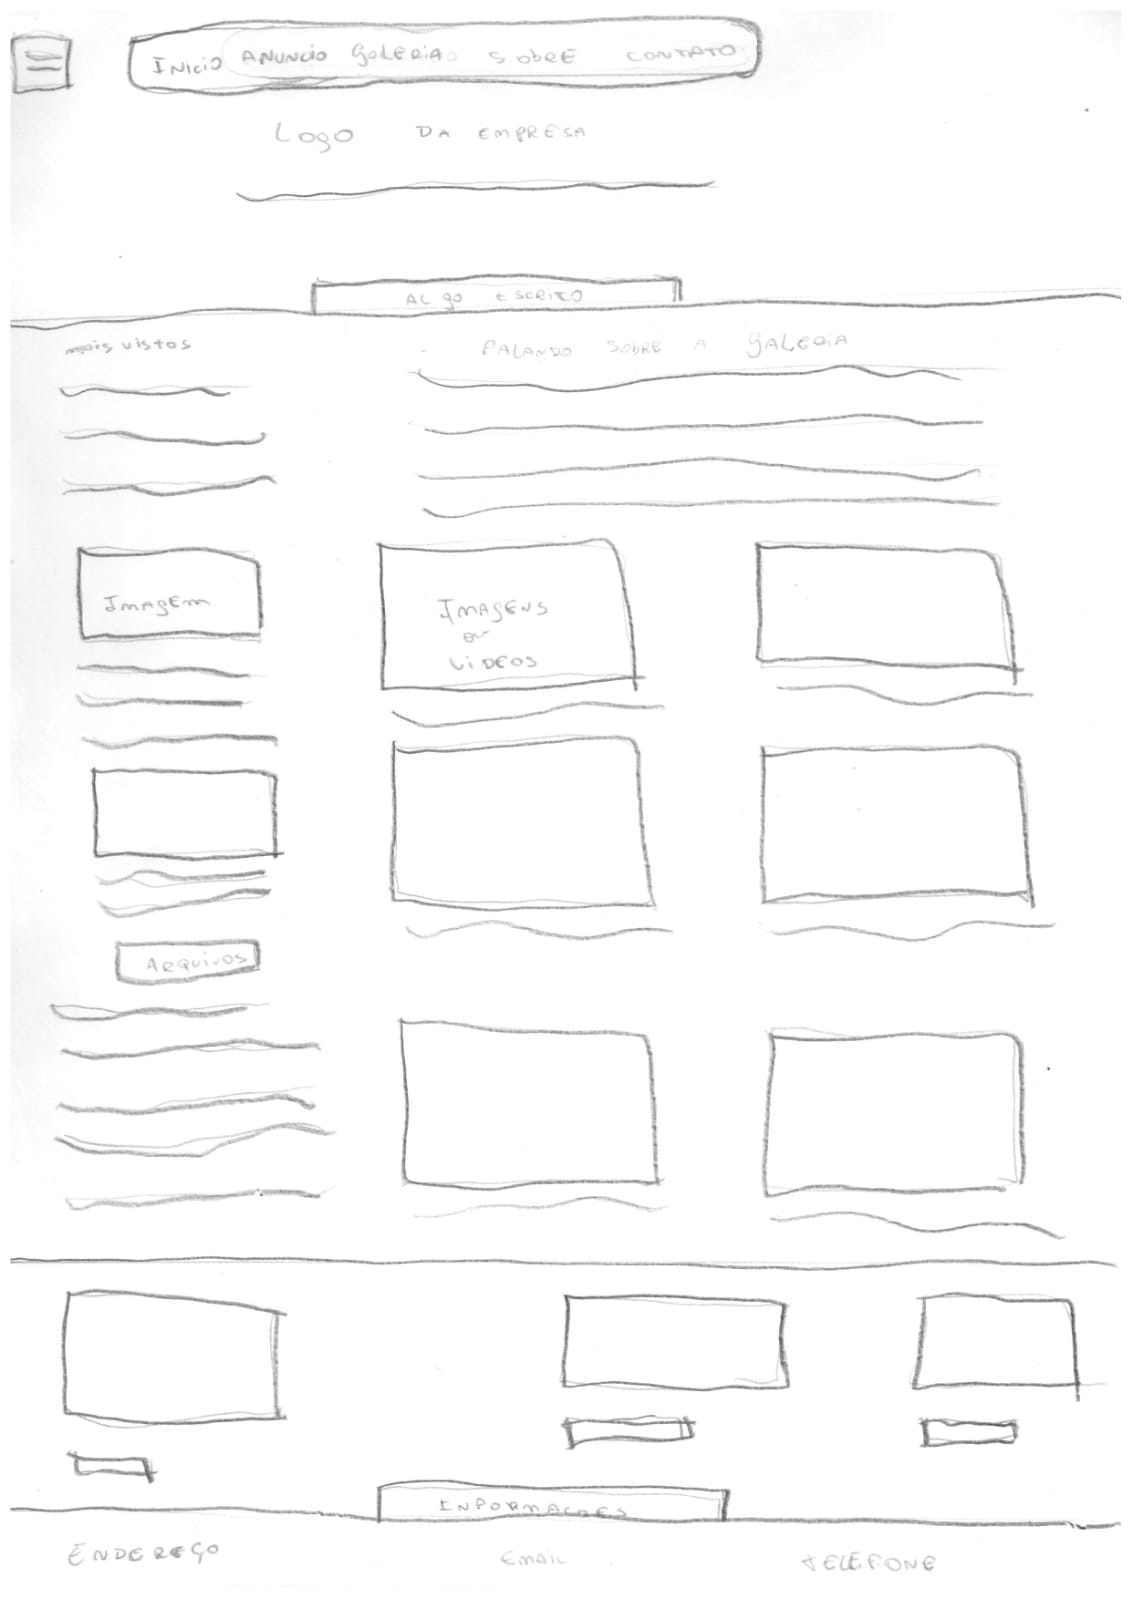 INICIO ANUNCIO GALERIA SOBRE CONTATO
LOGO DA EMPRESA
ALGO ESCRITO
mais vistos
FALANDO SOBRE A GALERIA
IMAGEM
IMAGENS
OU
VIDEOS
ARQUIVOS
INFORMACOES
ENDEREÇO EMAIL TELEFONE